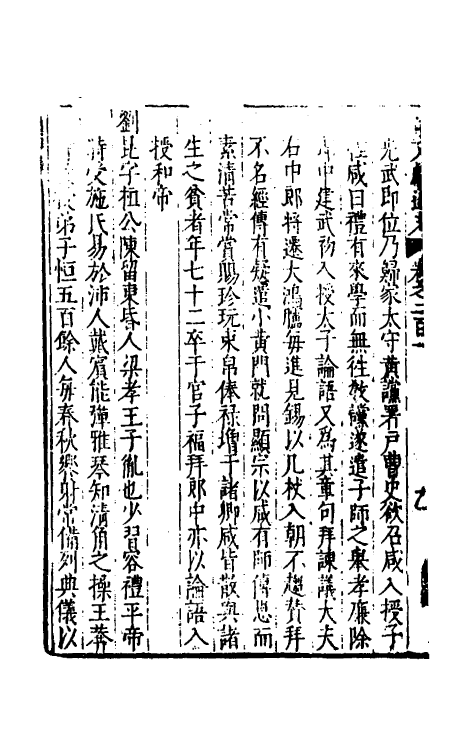 卷之二百一
光武即位乃歸家太守黃讜署戶曹史欲召咸入授子
咸曰禮有來學而無往教讜遂遣子師之舉孝廉除
中建武初入授太子論語又爲其章句拜諫議大夫
右中郎將遷大鴻臚每進見錫以几杖入朝不趨贊拜
不名經傳有疑遣小黃門就問顯宗以咸有師傅恩而
素清苦常賞賜珍玩束帛俸祿增于諸卿咸皆散與諸
生之貧者年七十二卒于官子福拜郎中亦以論語入
授和帝
劉昆字桓公陳留東昏人梁孝王子胤也少習容禮平帝
時受施氏易於沛人戴賓能彈雅琴知清角之操王莽
弟子恒五百餘人每春秋饗射常備列典儀以